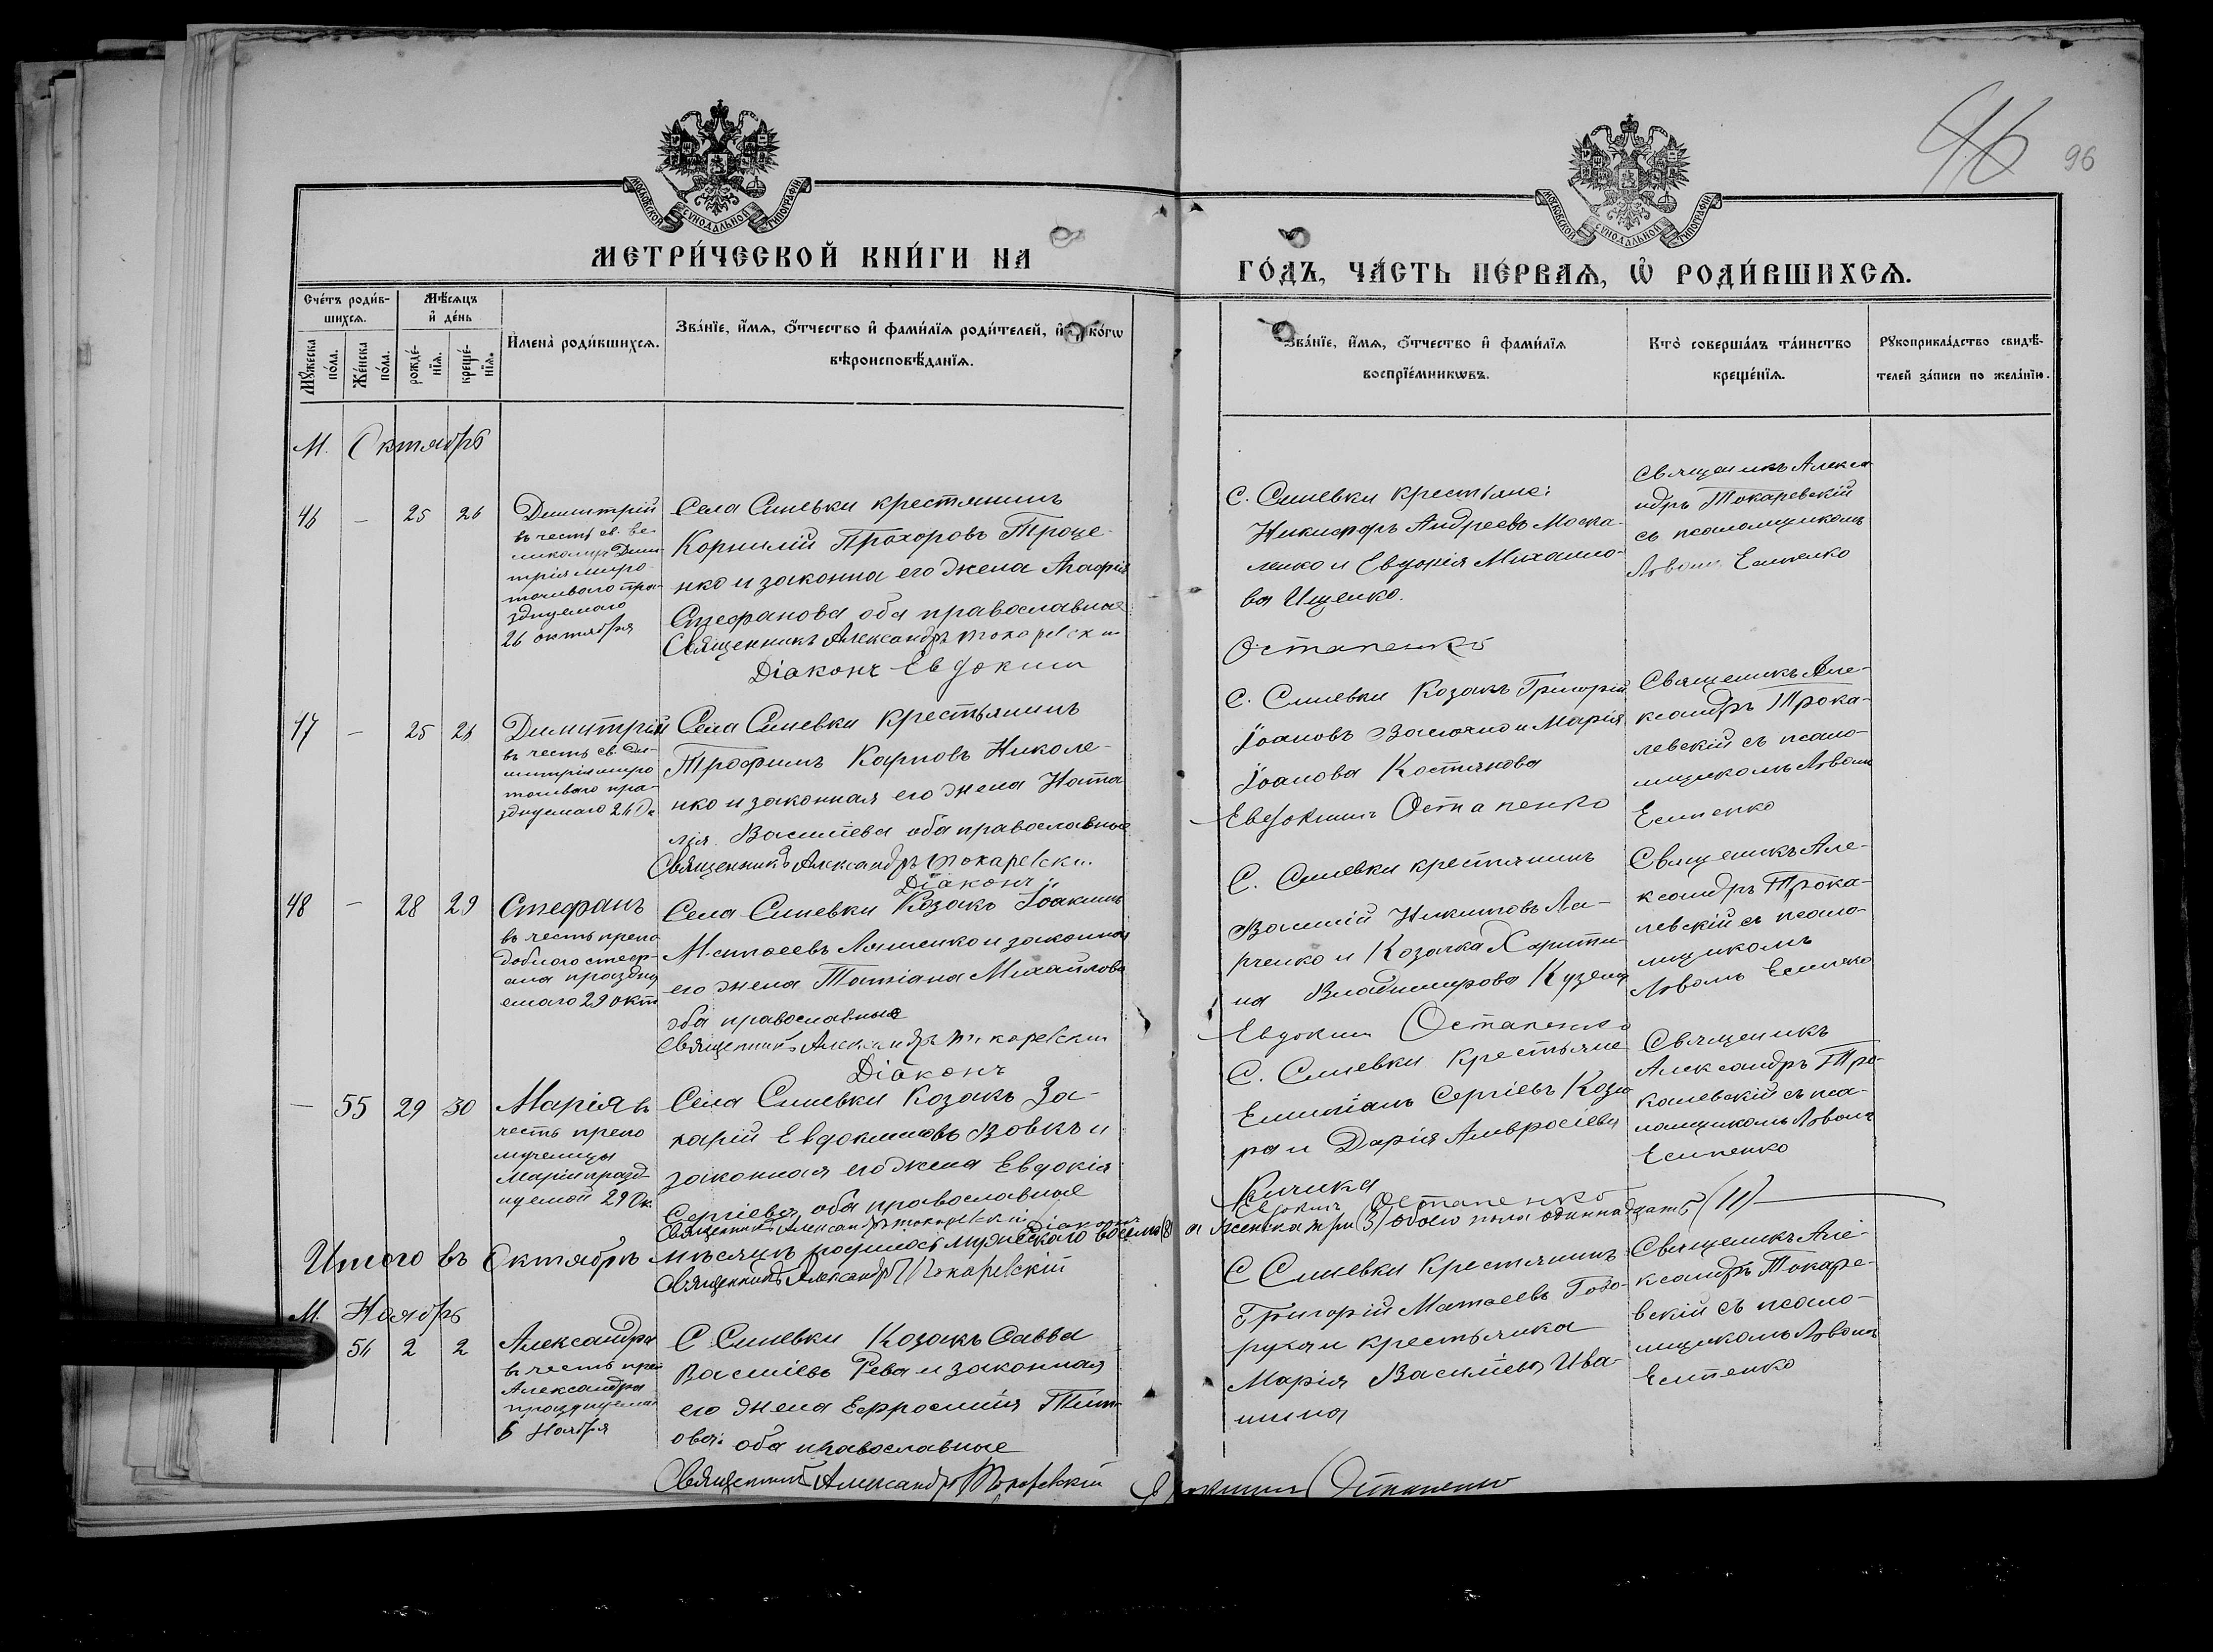 96
46
МОСКОВСКОЙ СѴНОДАЛЬНОЙ ТИПОГРАФІИ
МОСКОВСКОЙ СѴНОДАЛЬНОЙ ТИПОГРАФІИ
МЕТРИ́ЧЕСКОЙ КНИ́ГИ НА
ГО́ДЪ, ЧА́СТЬ ПЕ́РВАѦ, Ѡ҆ РОДИ́ВШИХСѦ.
Сче́тъ роди́в-
шихсѧ.
Мꙋ́жеска по́ла.
Же́нска по́ла.
Мѣ́сѧцъ
и҆ де́нь
рожде́-
нїѧ.
креще́-
нїѧ.
И҆мена̀ роди́вшихсѧ.
Зва́нїе, и҆́мѧ, ѻ҆́тчество и҆ фами́лїѧ роди́телей, и҆ ко́гѡ
вѣроисповѣ́данїѧ.
Зва́нїе, и҆́мѧ, ѻ҆́тчество и҆ фами́лїѧ
воспрїе́мникѡвъ.
Кто̀ соверша́лъ та́инство
креще́нїѧ.
Рꙋкоприкла́дство свидѣ́-
телей за́писи по жела́нїю.
М. Октябрь
46 — 25 26
Димитрій
въ честь св. ве-
ликомуч Дими
трія миро-
точиваго пра-
зднуемаго
26 октября
Села Синевки крестянинъ
Корнилій Прохоровъ Троце-
нко и законна его жена Агафія
Стефанова оба православные
Священникъ Александръ Токаревскій
Діаконъ Евдоким
С. Синевки крестьяне:
Никифоръ Андреевъ Моска-
ленко и Евдокія Михаило-
ва Ищенко.
Остапенко
Священикъ Алекса-
ндръ Токаревскій
съ псаломщикомъ
Есипенко
47 — 25 26
Димитрій
въ честь св. Ди-
митрія миро
точиваго пра-
зднуемаго 26 Ок
Села Синевки крестьянинъ
Трофимъ Карповъ Николе-
нко и законная его жена Ната
лія Васильева оба православные
Священникъ Александръ Токаревскі.
Діаконъ
С. Синевки Козакъ Григорій
Іоановъ и Марія
Іоанова Костикова
Евдокимъ Остапенко
Священикъ Але-
ксандръ Трока-
левскій съ псало-
мщикомъ
Есипенко
48 — 28 29
Стефанъ
въ честь препо
добнаго стеф-
ана праздну
емаго 29 окт
Села Синевки Козакъ Іоакимъ
Матвеевъ Ляшенко и законная
его жена Татіана Михайлова
оба православные
Священникъ Александръ Токаревскій
Діаконъ
С. Синевки крестянинъ
Василій Никитовъ Ла-
рченко и Козачка Харити-
на Владимирова Кузема
Евдоким Остапенко
Священикъ Але-
ксандръ Трока-
левскій съ псало-
мщикомъ
Есипенко
— 55 29 30
Марія въ
честь препо
мученицы
Маріи празд
нуемой 29 Ок.
Села Синевки Козакъ За-
харій Евдокимовъ Вовкъ и
законная его жена Евдокія
Сергіева оба православные
Священникъ Александръ Токаревскій Діаконъ
С. Синевки Крестьяне
Емиліанъ Сергіевъ Коза
ра и Дарія Амвросіева
Кичика
Евдокимъ Остапенко
Священикъ
Александръ Тро-
калевскій съ пса-
ломщикомъ
Есипенко
Итого въ Октябрѣ мѣсяцѣ родилось мужескаго восемь (8) а женска три (3) обоего пола одиннадцать (11)
Священникъ Александръ Токаревскій
М. Ноябрь
56 2 2
Александра
въ честь преп
Александра
празднуемая
6 Ноября
С Синевки Козакъ Савва
Василіевъ Рева и законная
его жена Евфросинія Тит-
ова: оба православные
Священникъ Александръ Токаревскій Евдокимъ Остапенко
С Синевки Крестянинъ
Григорій Матвеевъ Гово-
руха и крестьянка
Марія Васильева Ива-
нина
Священикъ Але-
ксандръ Токаре-
вскій съ псало-
мщикомъ
Есипенко